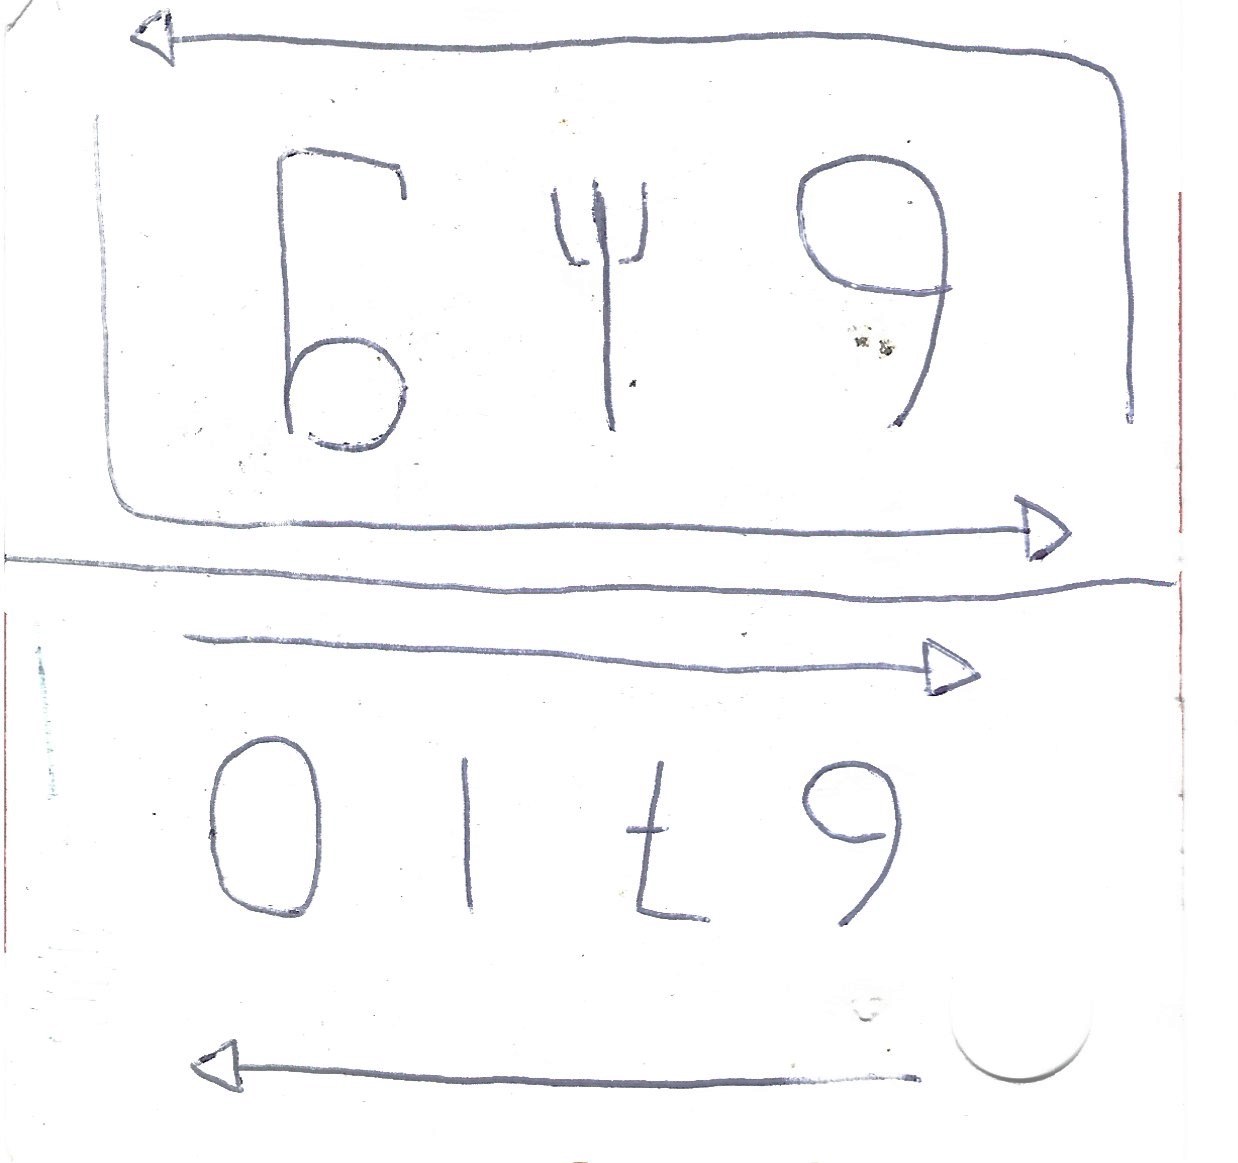 Б Ψ 9
0 1 9